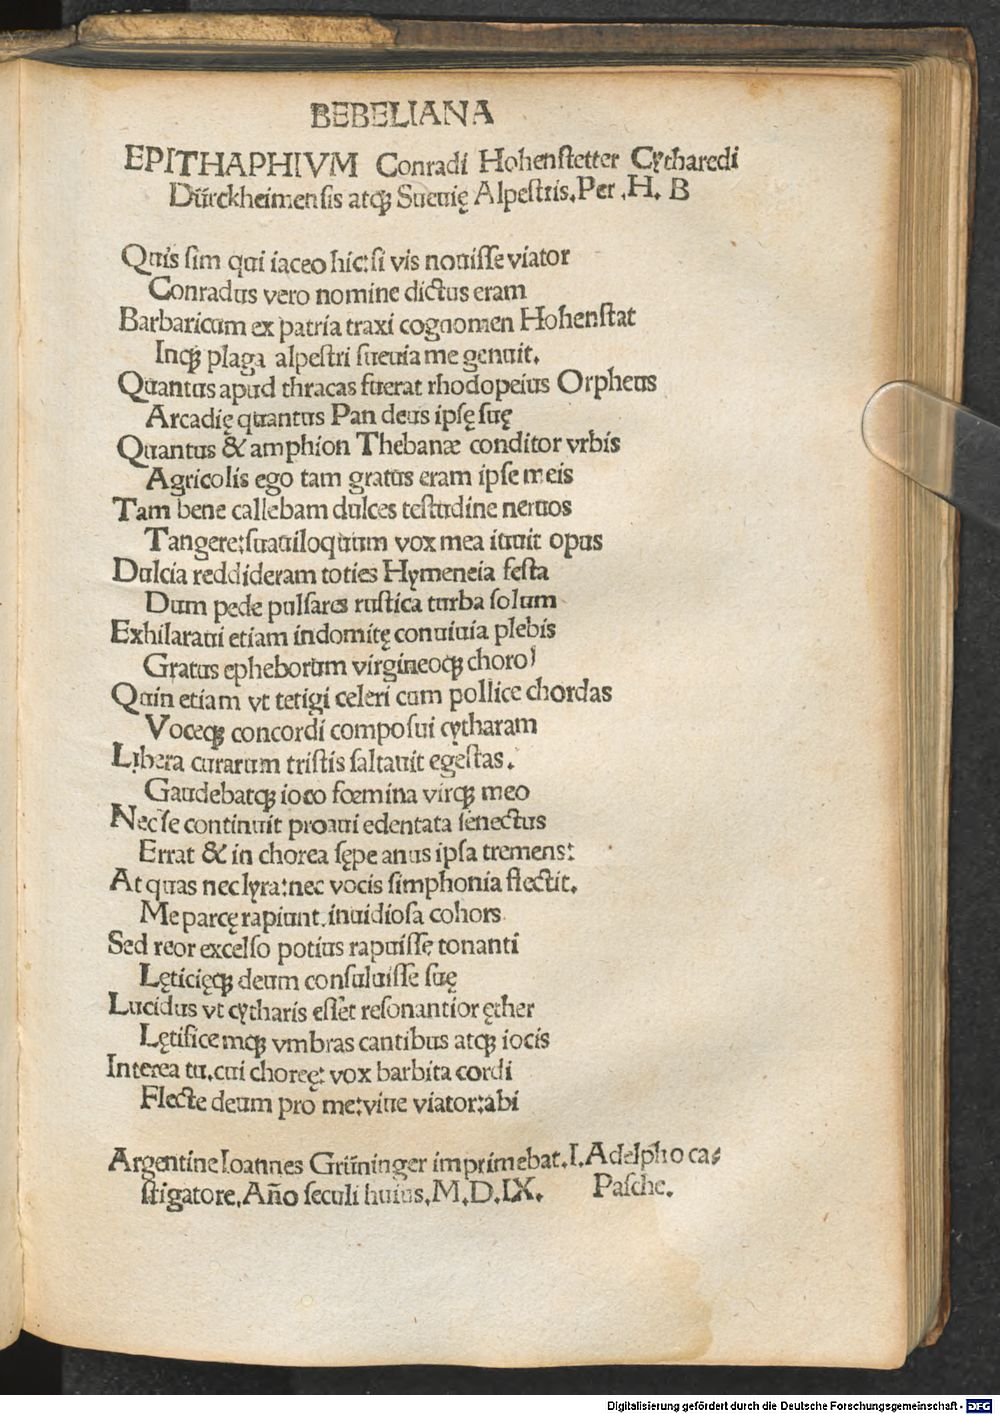 BEBELIANA
EPITHAPHIVM Conradi Hohenſtetter Cytharedi
Dürckheimenſis atqꝫ Sueuię Alpeſtris.Per .H. B
Quis ſim qui iaceo hic:ſi vis nouiſſe viator
Conradus vero nomine dictus eram
Barbaricum ex patria traxi cognomen Hohenſtat
Inqꝫ plaga alpeſtri ſueuia me genuit.
Quantus apud thracas fuerat rhodopeius Orpheus
Arcadię quantus Pan deus ipſę ſuę
Quantus & amphion Thebanæ conditor vrbis
Agricolis ego tam gratus eram ipſe meis
Tam bene callebam dulces teſtudine neruos
Tangere:ſuauiloquum vox mea iuuit opus
Dulcia reddideram toties Hymeneia feſta
Dum pede pulſares ruſtica turba ſolum
Exhilaraui etiam indomitę conuiuia plebis
Gratus epheborum virgineoqꝫ choro)
Quin etiam vt tetigi celeri cum pollice chordas
Voceqꝫ concordi compoſui cytharam
Libera curarum triſtis ſaltauit egeſtas.
Gaudebatqꝫ ioco fœmina virqꝫ meo
Nec ſe continuit proaui edentata ſenectus
Errat & in chorea ſępe anus ipſa tremens:
At quas nec lyra:nec vocis ſimphonia flectit.
Me parcę rapiunt.inuidioſa cohors
Sed reor excelſo potius rapuiſſę tonanti
Lęticięqꝫ deum conſuluiſſe ſuę
Lucidus vt cytharis eſſet reſonantior ęther
Lętificemqꝫ vmbras cantibus atqꝫ iocis
Interea tu.cui choreę: vox barbita cordi
Flecte deum pro me:viue viator:abi
Argentine Ioannes Grüninger imprimebat.I.Adelpho ca⸗
ſtigatore.Año ſeculi huius.M.D.IX. Paſche.
Digitalisierung gefördert durch die Deutsche Forschungsgemeinschaft - DFG